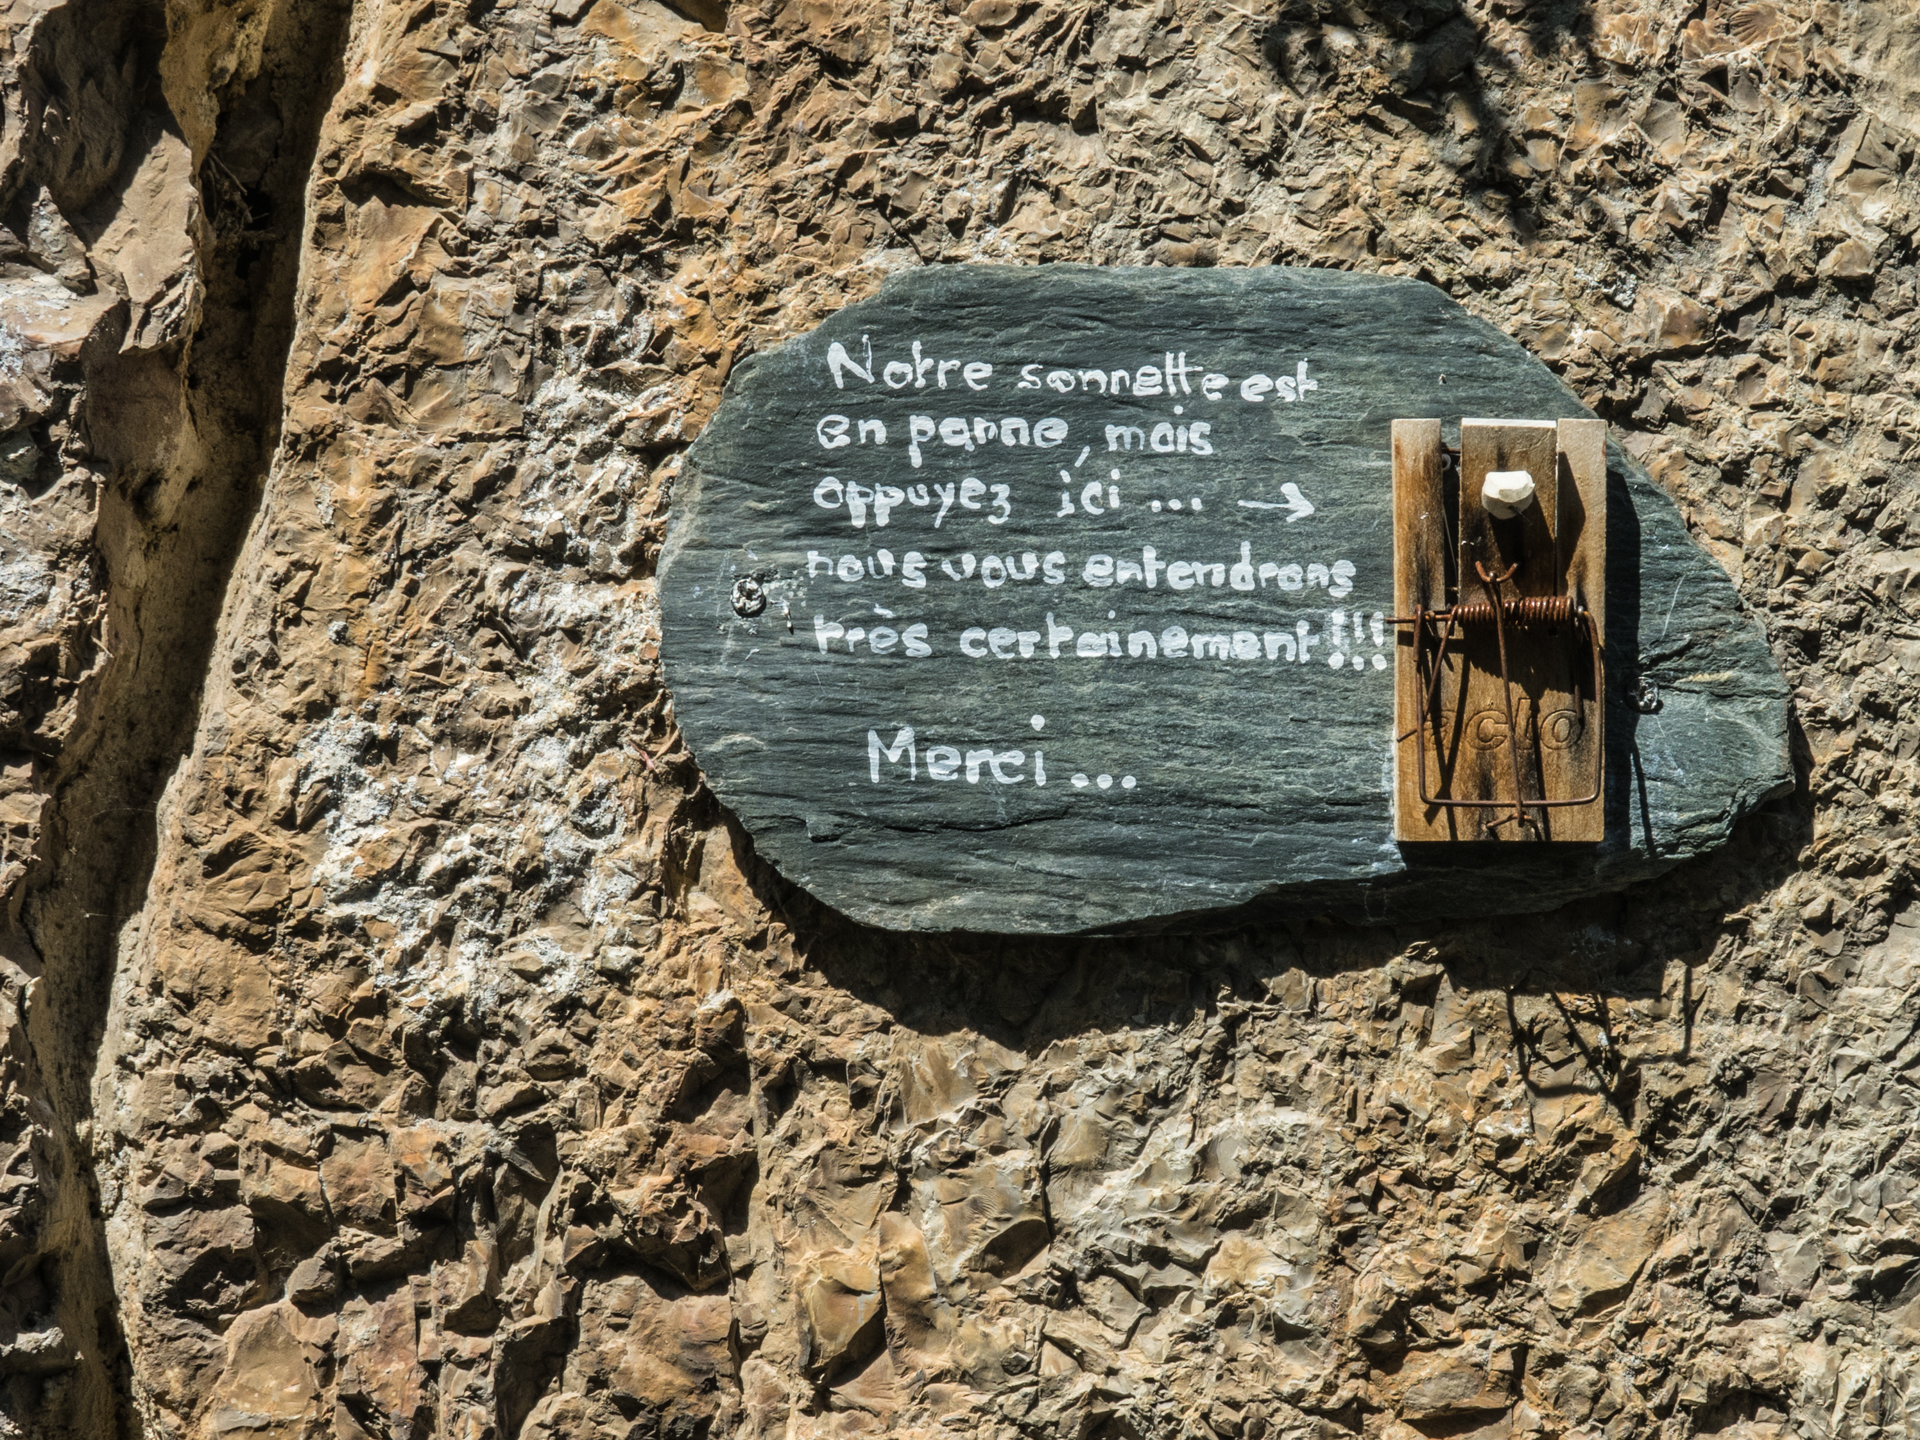 Notre sonnette est
en panne, mais
appuyez ici ... →
nous vous entendrons
très certainement!!!
Merci...